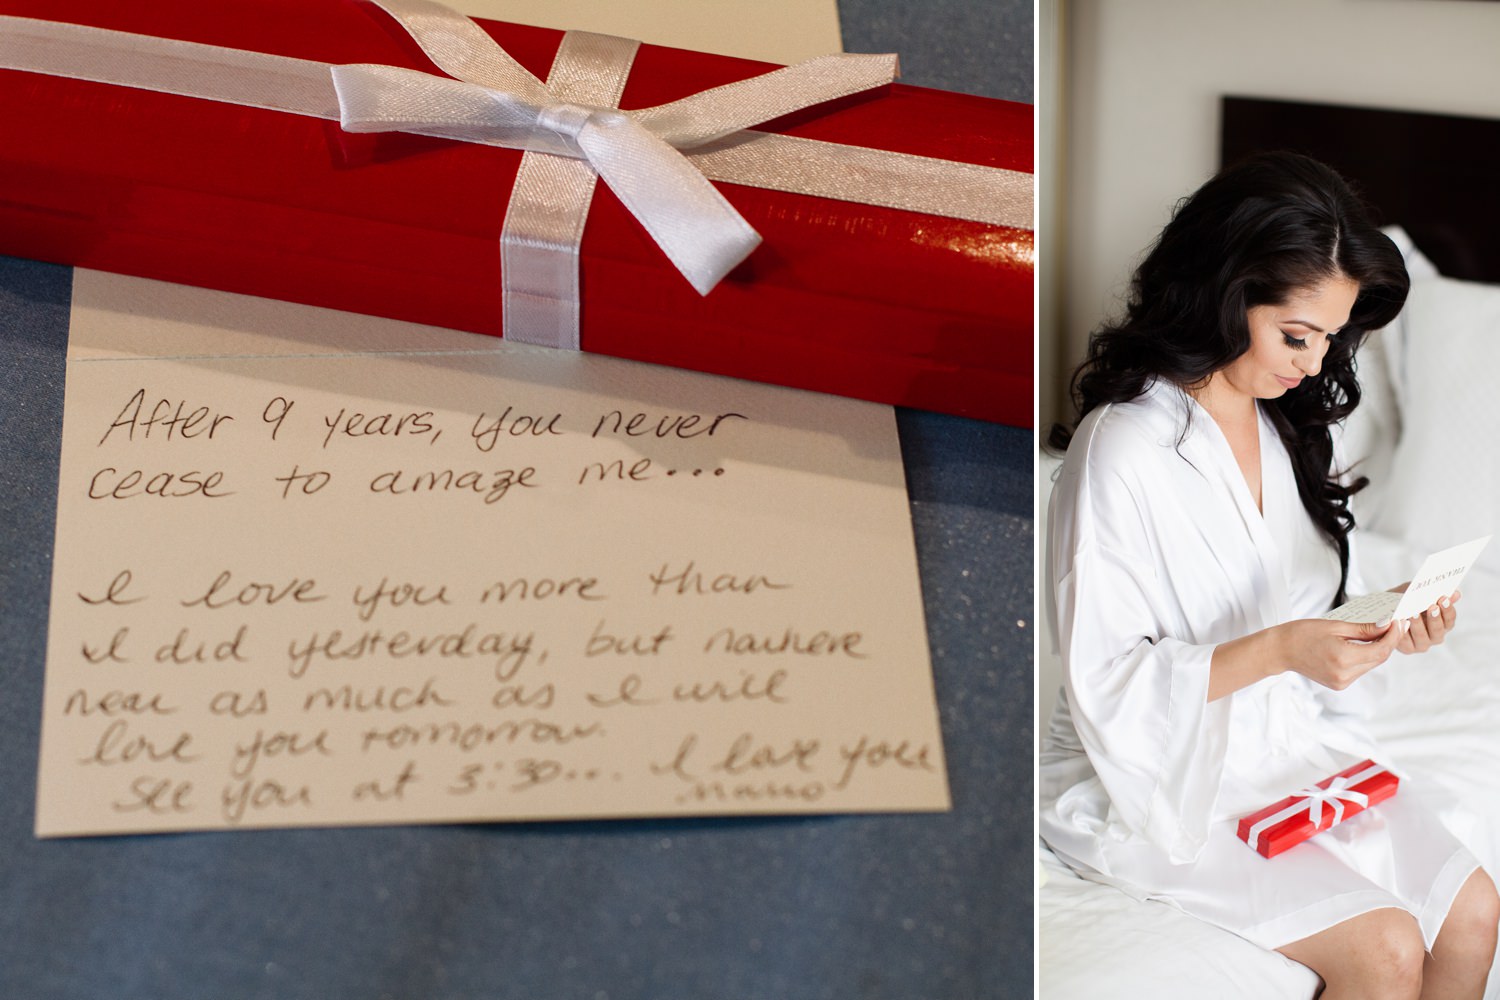 After 9 years, you never
cease to amaze me...
I love you more than
I did yesterday, but nowhere
near as much as I will
love you tomorrow.
See you at 3:30... I love you